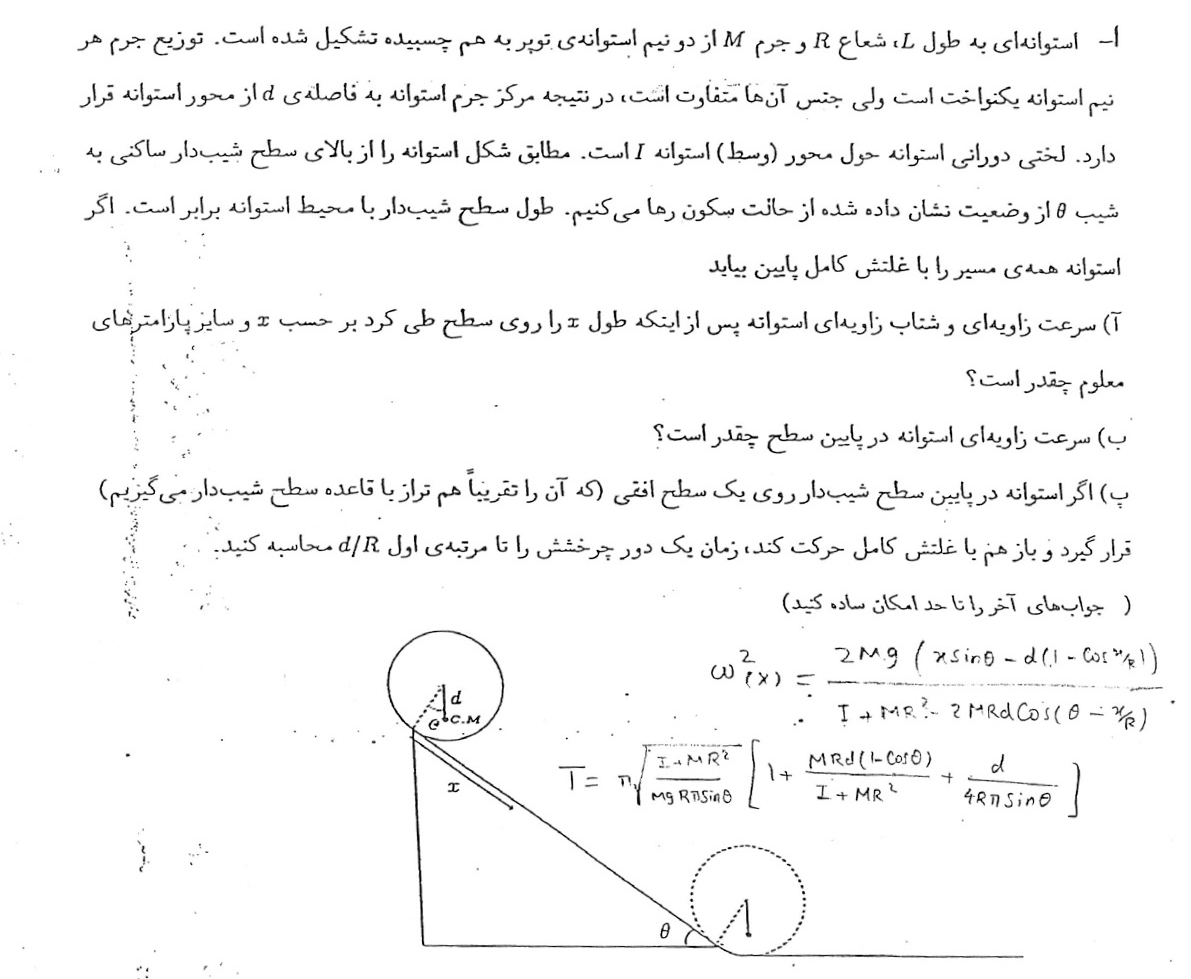 أ– استوانه‌ای به طول L، شعاع R و جرم M از دو نیم استوانه‌ی توپر به هم چسبیده تشکیل شده است. توزیع جرم هر
نیم استوانه یکنواخت است ولی جنس آن‌ها متفاوت است، در نتیجه مرکز جرم استوانه به فاصله‌ی d از محور استوانه قرار
دارد. لختی دورانی استوانه حول محور (وسط) استوانه I است. مطابق شکل استوانه را از بالای سطح شیب‌دار ساکنی به
شیب θ از وضعیت نشان داده شده از حالت سکون رها می‌کنیم. طول سطح شیب‌دار با محیط استوانه برابر است. اگر
استوانه همه‌ی مسیر را با غلتش کامل پایین بیاید
آ) سرعت زاویه‌ای و شتاب زاویه‌ای استوانه پس از اینکه طول x را روی سطح طی کرد بر حسب x و سایر پارامترهای
معلوم چقدر است؟
ب) سرعت زاویه‌ای استوانه در پایین سطح چقدر است؟
پ) اگر استوانه در پایین سطح شیب‌دار روی یک سطح افقی (که آن را تقریباً هم تراز با قاعده سطح شیب‌دار می‌گیریم)
قرار گیرد و باز هم با غلتش کامل حرکت کند، زمان یک دور چرخشش را تا مرتبه‌ی اول d/R محاسبه کنید.
( جواب‌های آخر را تا حد امکان ساده کنید)
ω²(x) = 2Mg (x sinθ - d(1 - cos x/R)) / I + MR² - 2MRd Cos(θ - x/R)
T = π√(I + MR² / MgRπ Sinθ) [1 + MRd(1-Cosθ) / I + MR² + d / 4Rπ Sinθ]
d
θ C.M
x
θ